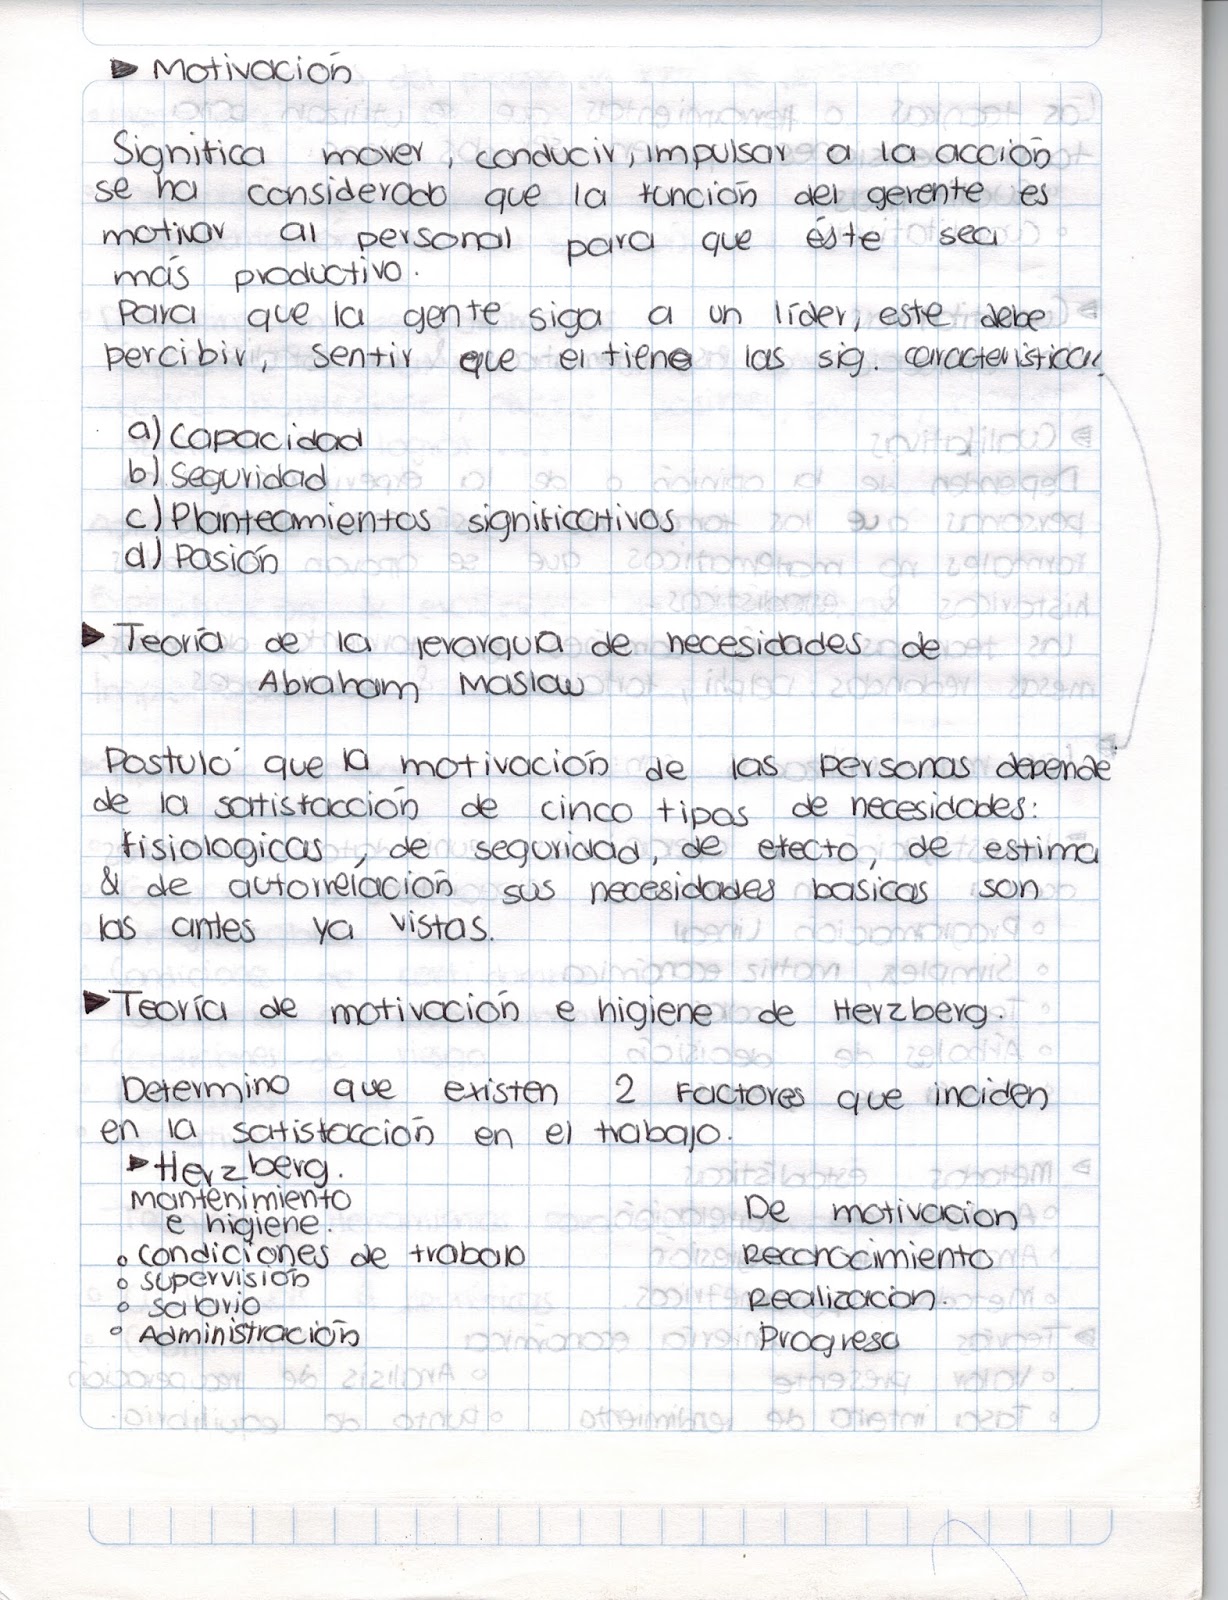 ▶ Motivación
Significa mover, conducir, impulsar a la acción
se ha considerado que la función del gerente es
motivar al personal para que éste sea
más productivo.
Para que la gente siga a un líder, este debe
percibir, sentir que el tiene las sig. caracteristicas
a) Capacidad
b) Seguridad
c) Planteamientos significativos
d) Pasión
▶ Teoría de la jerarquia de necesidades de
Abraham Maslow
Postuló que la motivación de las personas depende
de la satisfacción de cinco tipos de necesidades:
fisiologicas, de seguridad, de efecto, de estima
& de autorrelación sus necesidades basicas son
las antes ya vistas.
▶ Teoría de motivación e higiene de Herzberg.
Determino que existen 2 Factores que inciden
en la satisfacción en el trabajo.
▶ Herzberg.
Mantenimiento
e higiene.
De motivacion
° Condiciones de trabajo
Reconocimiento
° Supervisión
° Salario
Realizacion.
° Administración
Progreso